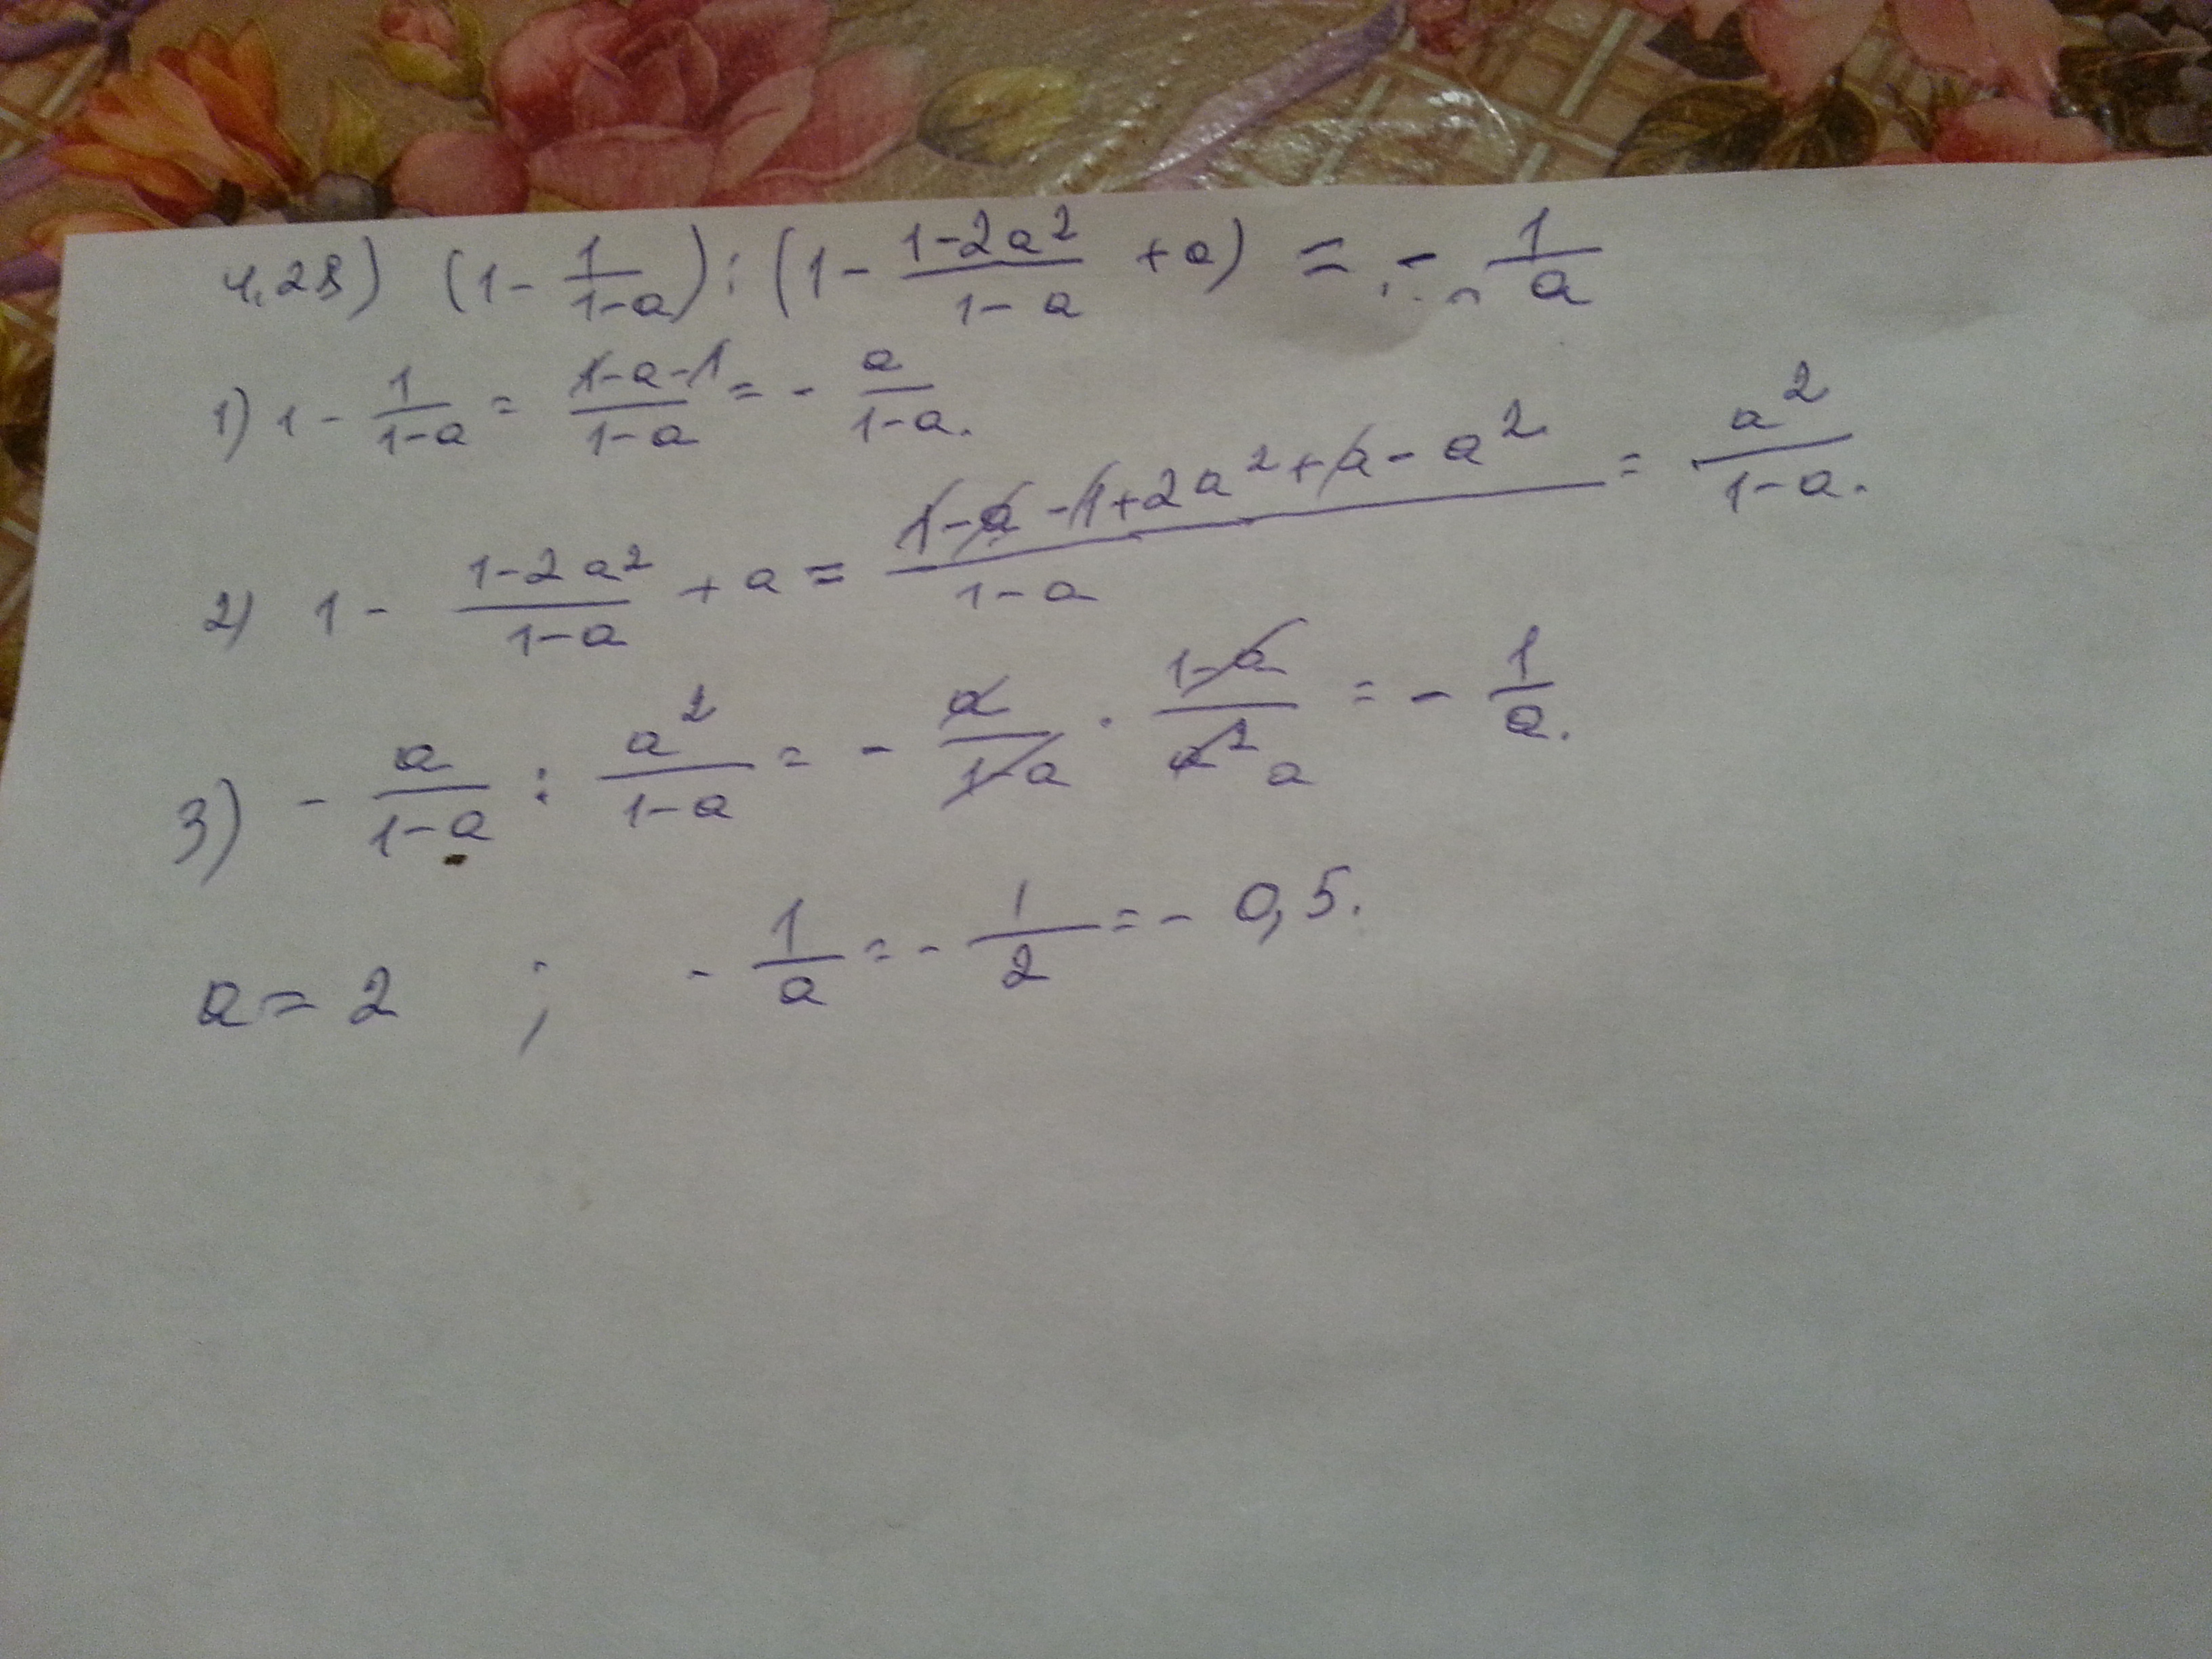 4.28) (1 - 1/(1-a)) : (1 - (1-2a²)/(1-a) + a) = - 1/a
1) 1 - 1/(1-a) = (1-a-1)/(1-a) = - a/(1-a).
2) 1 - (1-2a²)/(1-a) + a = (1-a-1+2a²+a-a²)/(1-a) = a²/(1-a).
3) - a/(1-a) : a²/(1-a) = - a/(1-a) · (1-a)/(a² a) = - 1/a.
a = 2 ; - 1/a = - 1/2 = - 0,5.